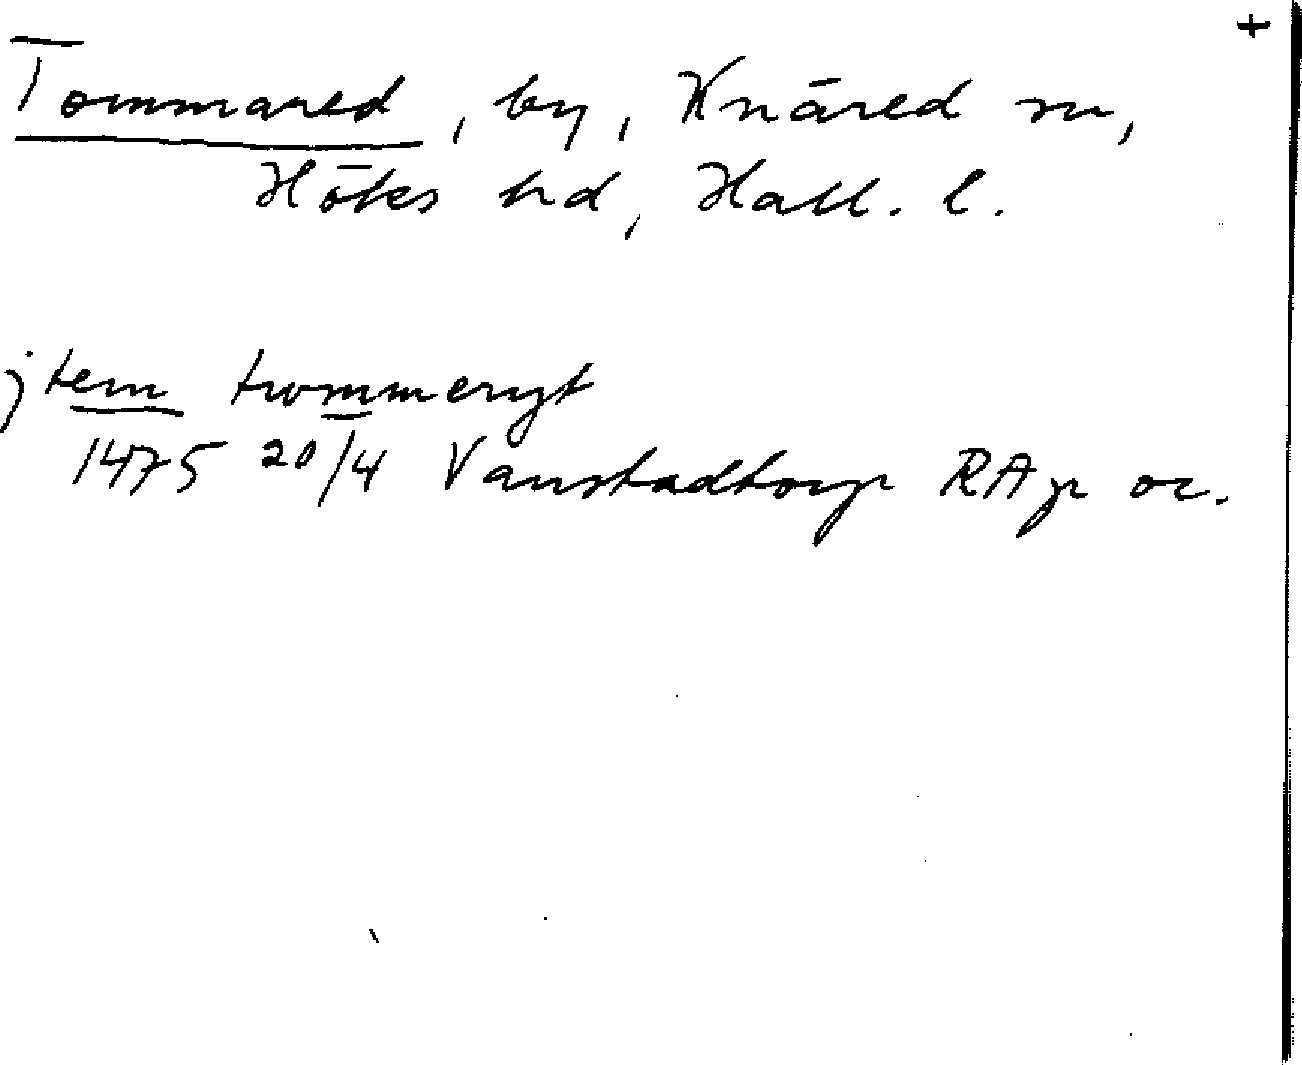 +
Tommared, by, Knäred sn,
Höks hd, Hall. l.
jtem trommeryt
1475 20/4 Vanstadtorp RAp or.